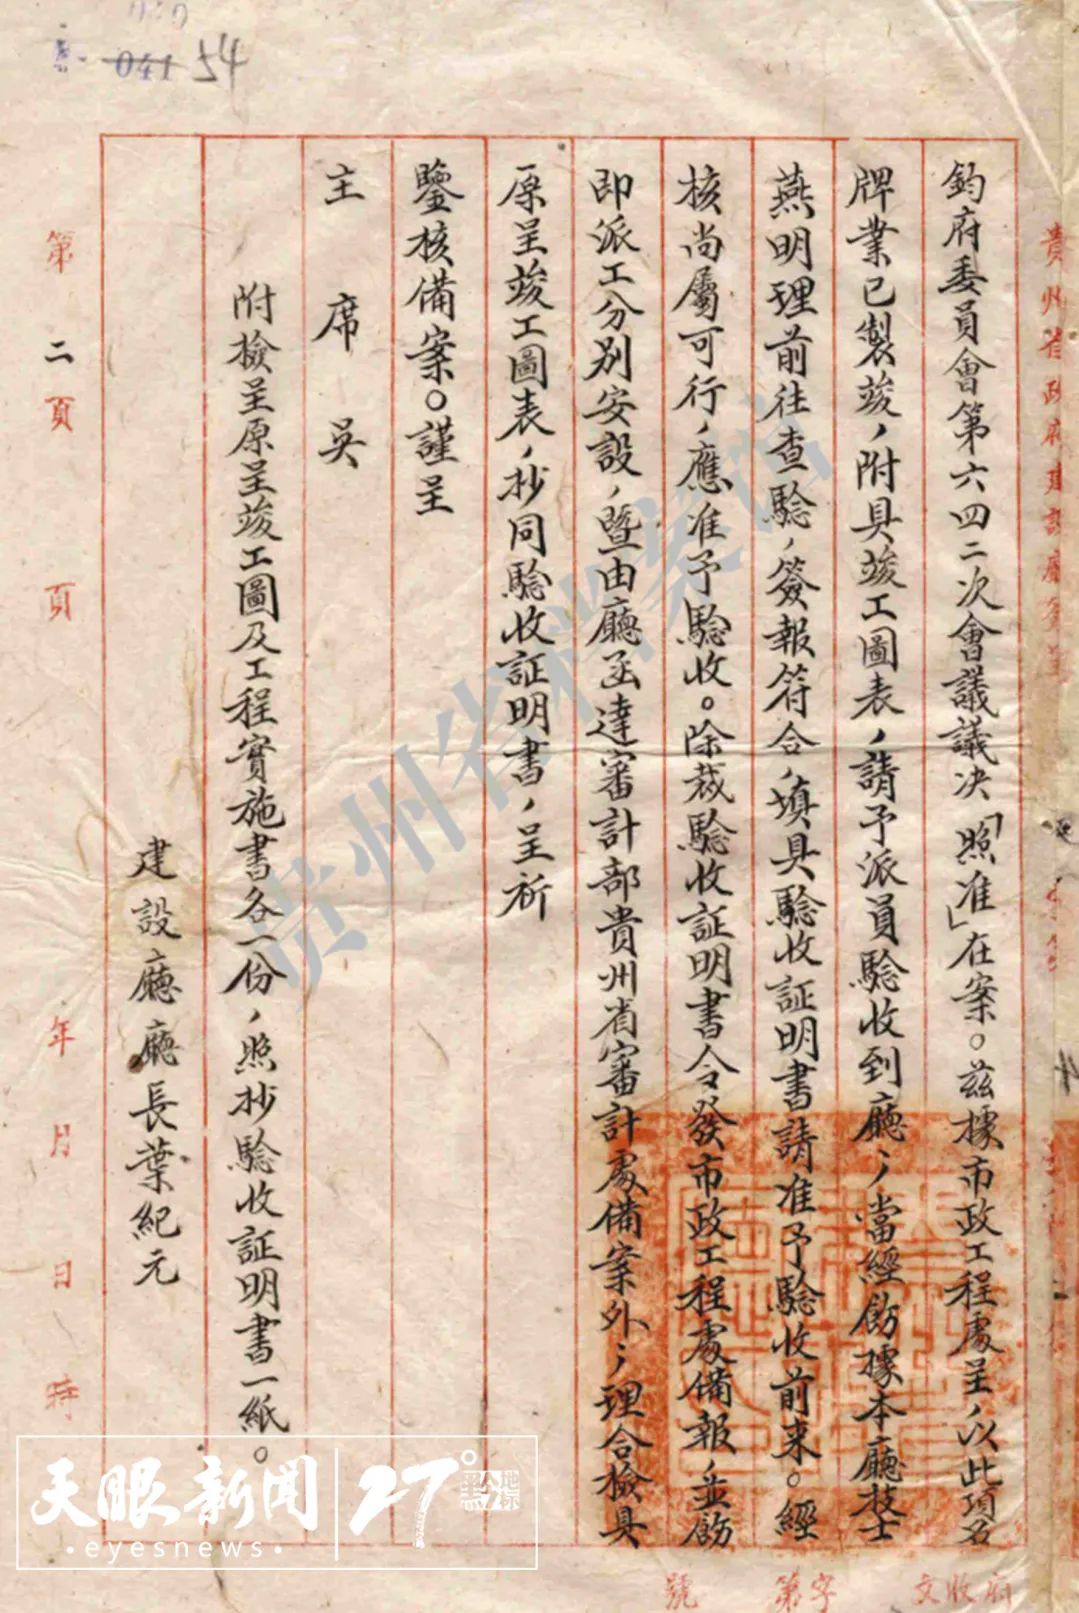 041 54
貴州省政府建設廳
鈞府委員會第六四二次會議議决「照准」在案。兹據市政工程處呈，以此項名
牌業已製竣，附具竣工圖表，請予派員驗收到廳，當經飭據本廳技士
燕明理前往查驗，簽報符合，填具驗收証明書請准予驗收前来。經
核尚屬可行，應准予驗收。除裁驗收証明書令發市政工程處備報，並飭
即派工分别安設，暨由廳函達審計部貴州省審計處備案外，理合檢具
原呈竣工圖表，抄同驗收証明書，呈祈
鑒核備案。謹呈
主席吳
附檢呈原呈竣工圖及工程實施書各一份，照抄驗收証明書一紙。
建設廳廳長葉紀元
第二頁 頁 年 月 日 時
府收文 字第 號
贵州省档案馆
天眼新闻 27° 黔地标
·eyesnews·